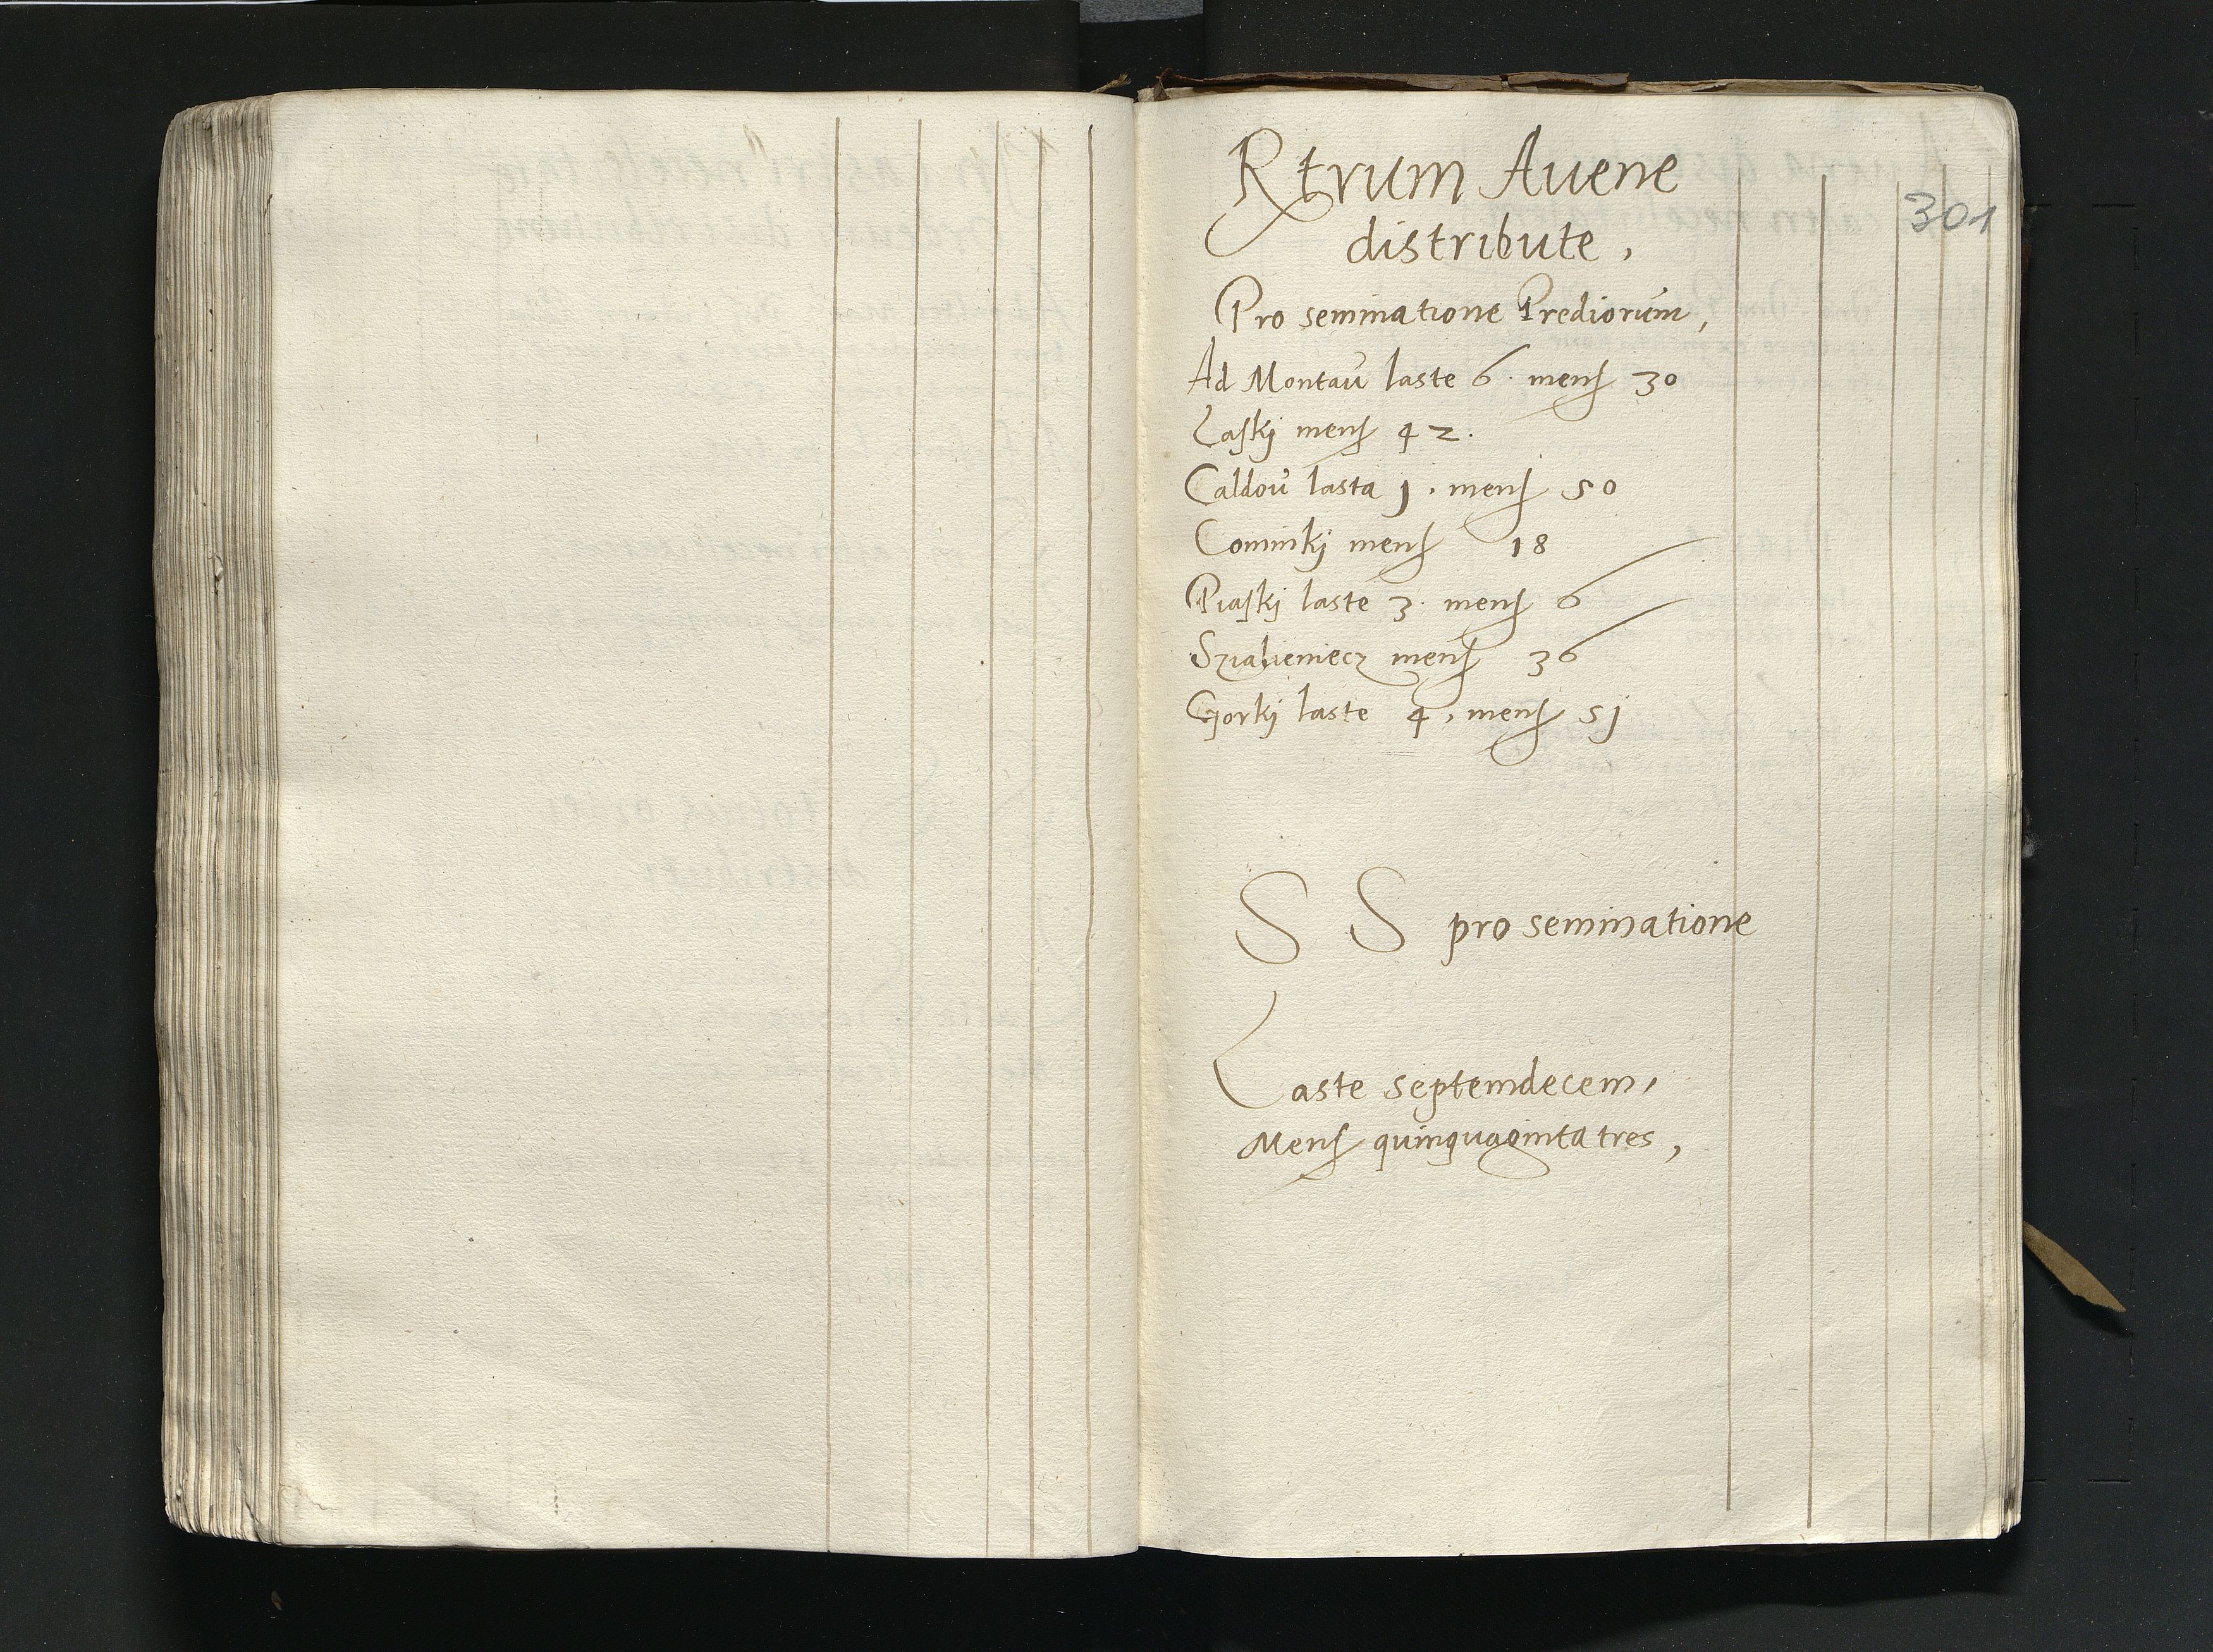 301
Rtrum Auene
distribute,
Pro seminatione Prediorum,
Ad Montau laste 6. mens 30
Laski mens 42.
Caldou lasta 1. mens 50
Cominki mens 18
Piaski laste 3. mens 6
mens 36
Gorki laste 4, mens 51
S S pro seminatione
Laste septemdecem,
Mens quinquaginta tres,